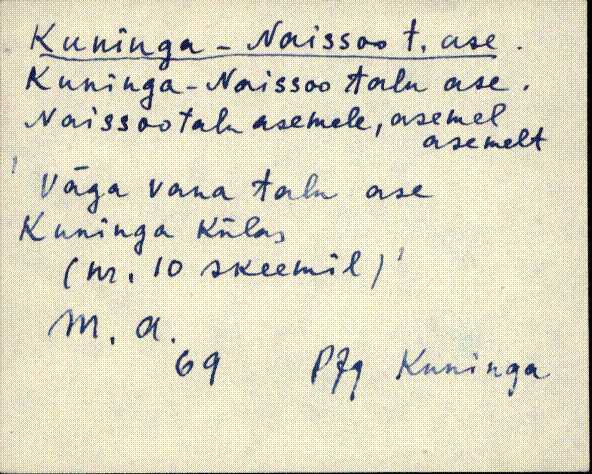 Kuninga-Naissoo t. ase.
Kuninga-Naissoo talu ase.
Naissootalu asemele, asemel
asemelt
'Väga vana talu ase
Kuninga külas
(nr. 10 skeemil)'
M. A.
69 PJg Kuninga